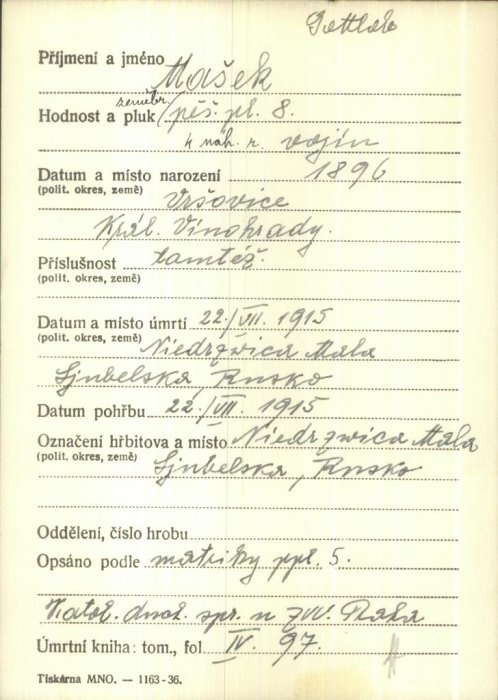 Gottlob
Příjmení a jméno Mašek
zeměbr.
Hodnost a pluk pěš. pl. 8.
k náh. r. vojín
Datum a místo narození 1896
(polit. okres, země) Vršovice
Král. Vinohrady.
Příslušnost tamtéž.
(polit. okres, země)
Datum a místo úmrtí 22./VII. 1915
(polit. okres, země) Niedrzwica Mala
Ljubelska, Rusko
Datum pohřbu 22./VII. 1915
Označení hřbitova a místo Niedrzwica Mala
(polit. okres, země) Ljubelska, Rusko
Oddělení, číslo hrobu
Opsáno podle matriky ppl. 5.
Katol. duch. spr. u ZVV. Praha
Úmrtní kniha: tom., fol. IV. 97.
Tiskárna MNO. — 1163-36.